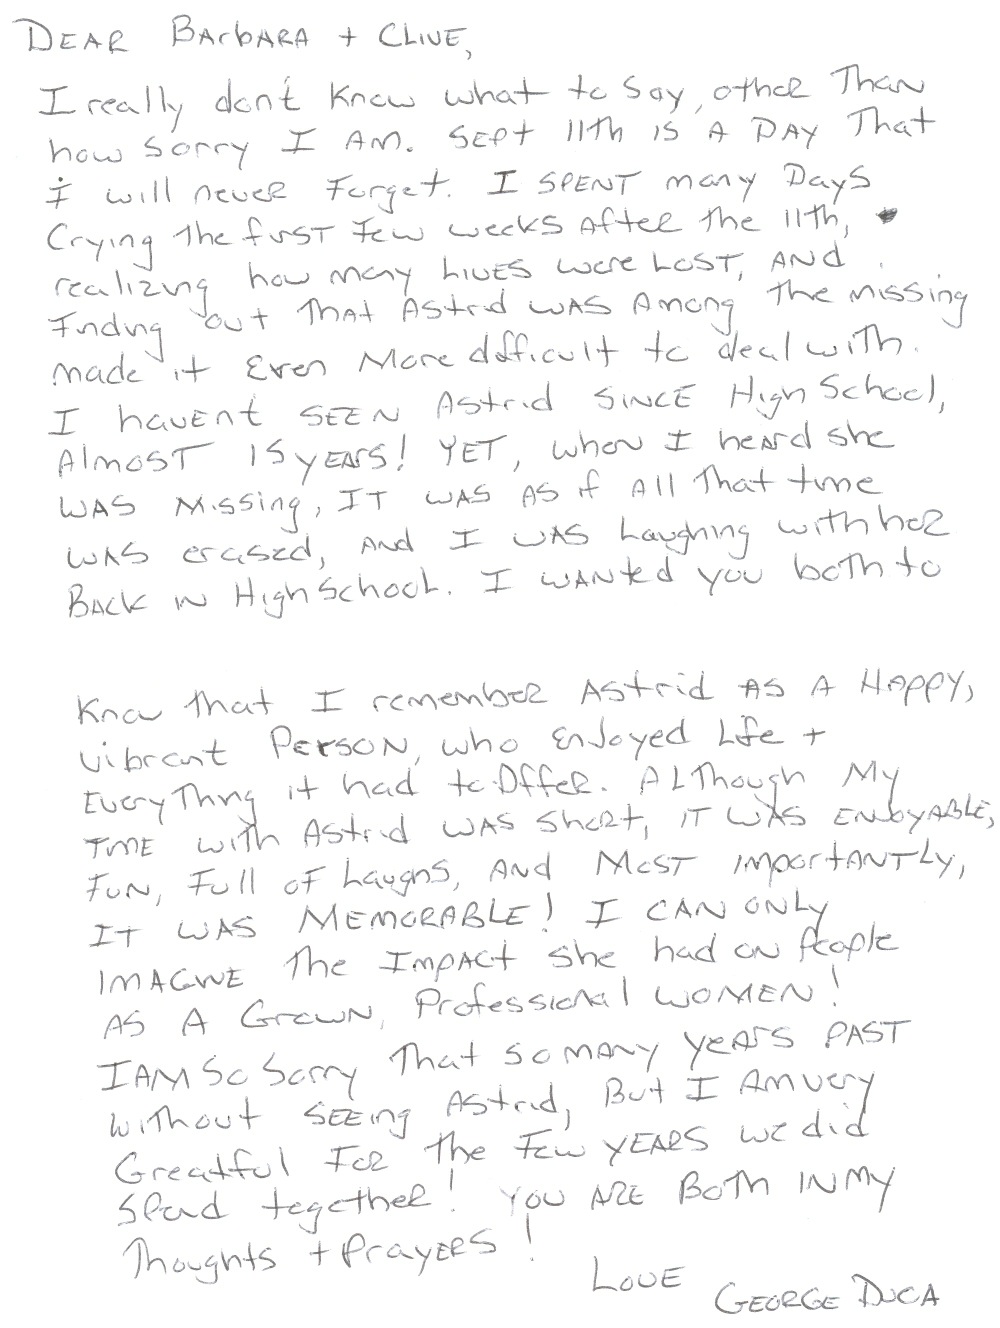 DEAR BARBARA + CLIVE,
I really don't know what to say, other Than
how sorry I AM. SEPT 11th IS A DAY That
I will never Forget. I SPENT many Days
Crying the first Few weeks After the 11th,
realizing how many LIVES were LOST, AND
Finding out THAT Astrid WAS Among The missing
made it Even More difficult to deal with.
I haven't SEEN Astrid SINCE High School,
Almost 15 YEARS! YET, when I heard she
WAS Missing, IT WAS AS if All That time
WAS erased, AND I WAS Laughing with her
BACK IN High School. I WANted you both to
Know that I remember Astrid AS A HAPPY,
vibrant PERSON, who EnJoyed Life +
EveryThing it had to Offer. ALThough My
TIME with Astrid WAS short, IT WAS ENJOYABLE,
FUN, Full of Laughs, AND MOST ImportANTLy,
IT WAS MEMORABLE! I CAN ONLY
IMAGINE The IMPACT she had on People
AS A Grown, Professional WOMEN!
I AM So Sorry That so many years PAST
without SEEing Astrid, But I Am very
Greatful For The Few YEARS we did
Spend together! YOU ARE BOTH IN MY
Thoughts + PrayERS!
LOVE
GEORGE DUCA